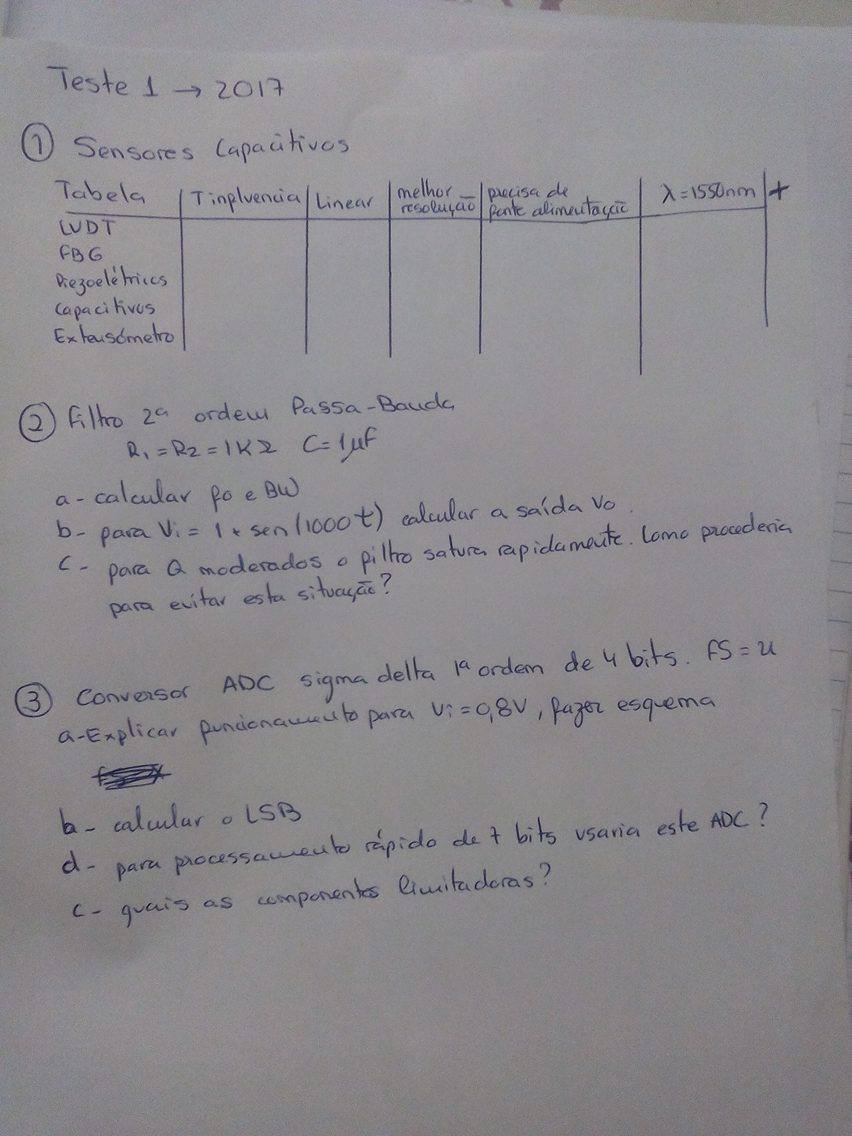 Teste 1 → 2017
① Sensores Capacitivos
Tabela | T influencia | Linear | melhor resolução | precisa de fonte alimentação | λ=1550nm | +
LVDT
FBG
Piezoelétricos
Capacitivos
Extensómetro
② Filtro 2ª ordem Passa-Banda
R₁=R₂=1KΩ C=1μF
a - calcular fo e BW
b - para Vi = 1 * sen(1000t) calcular a saída Vo.
c - para Q moderados o filtro satura rapidamente. Como procederia
para evitar esta situação?
③ Conversor ADC sigma delta 1ª ordem de 4 bits. FS=4
a-Explicar funcionamento para Vi=0,8V, fazer esquema
b - calcular o LSB
d - para processamento rápido de 7 bits usaria este ADC?
c - quais as componentes limitadoras?